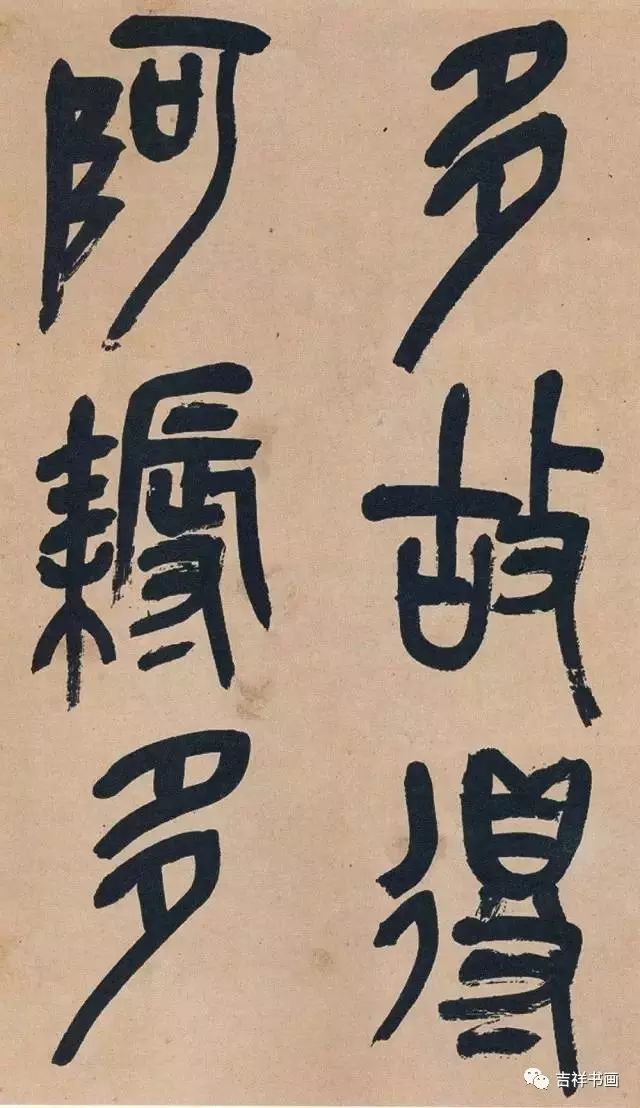 多故得
阿耨多
吉祥书画